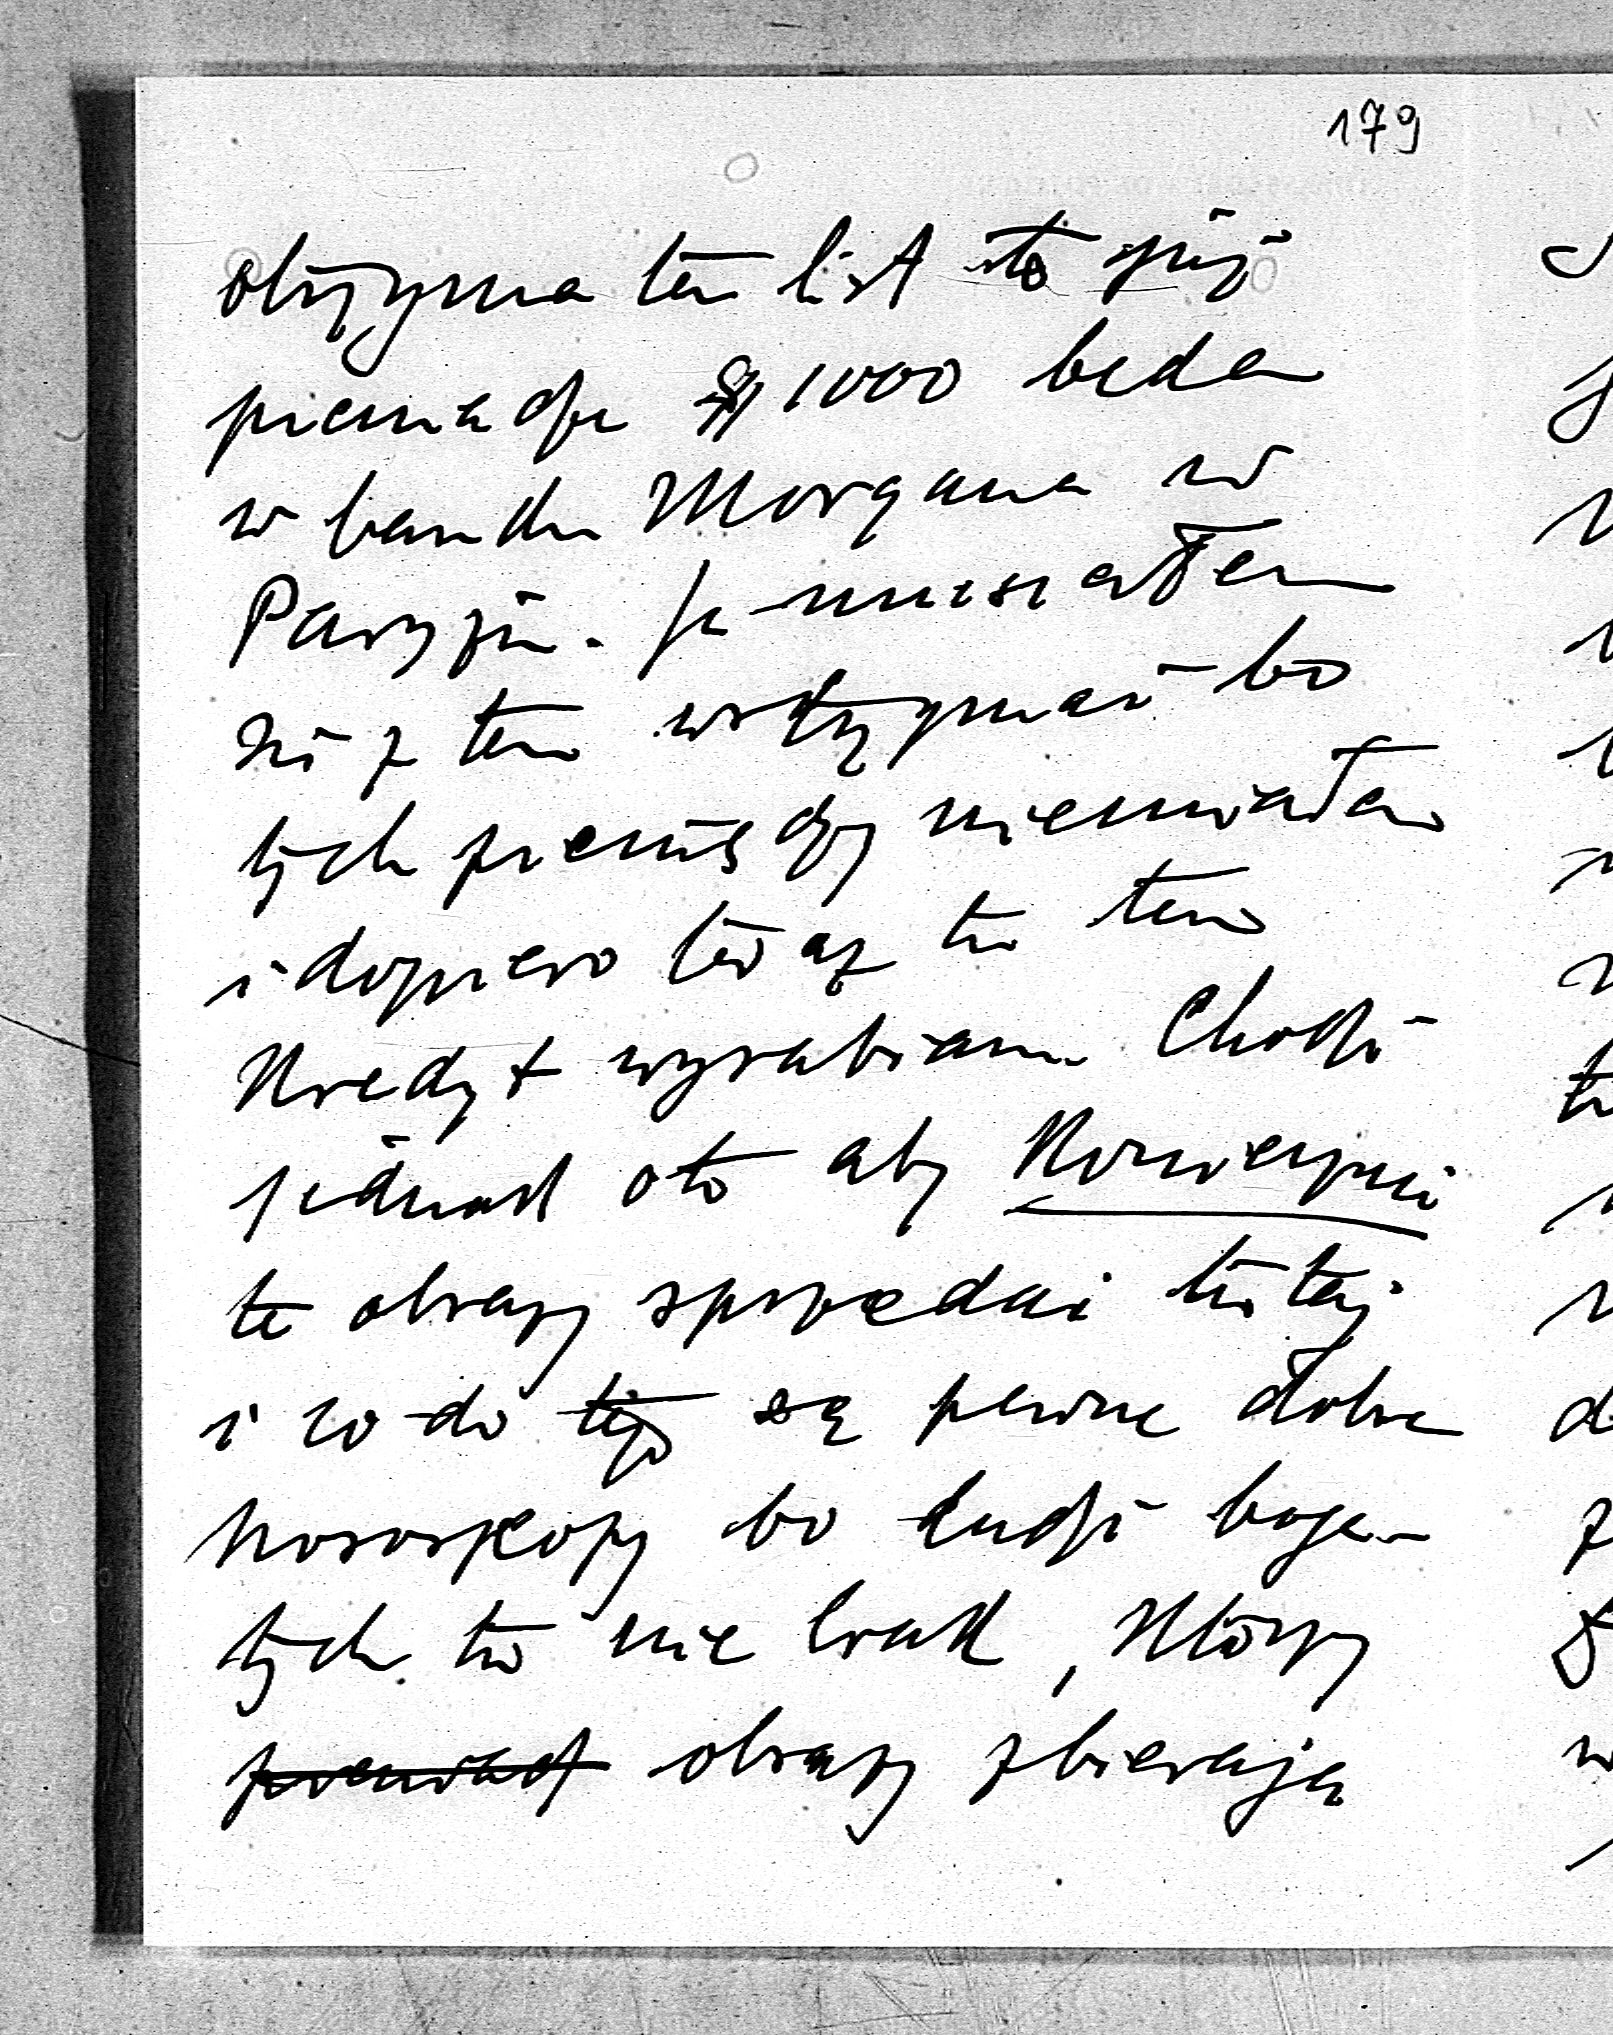 179
otrzyma ten list to już
pieniadze $ 1000 beda
w banku Morgana w
Paryżu. Ja musiałem
się z tem wstrzymać bo
tych pieniędzy niemiałem
i dopiero teraz tu ten
Kredyt wyrabiam Chodzi
jednak oto aby Koniecznie
te obrazy sprzedać tutaj
i co do tego są pewne dobre
horoskopy bo ludzi boga-
tych tu nie brak, którzy
obrazy zbierają